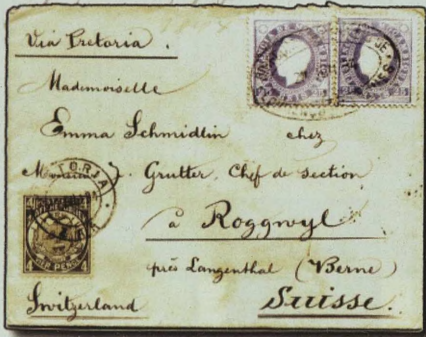 Via Pretoria.
Mademoiselle
Emma Schmidlin chez
Grutter, Chef de section
à Roggwyl
près Langenthal (Berne)
Switzerland Suisse.